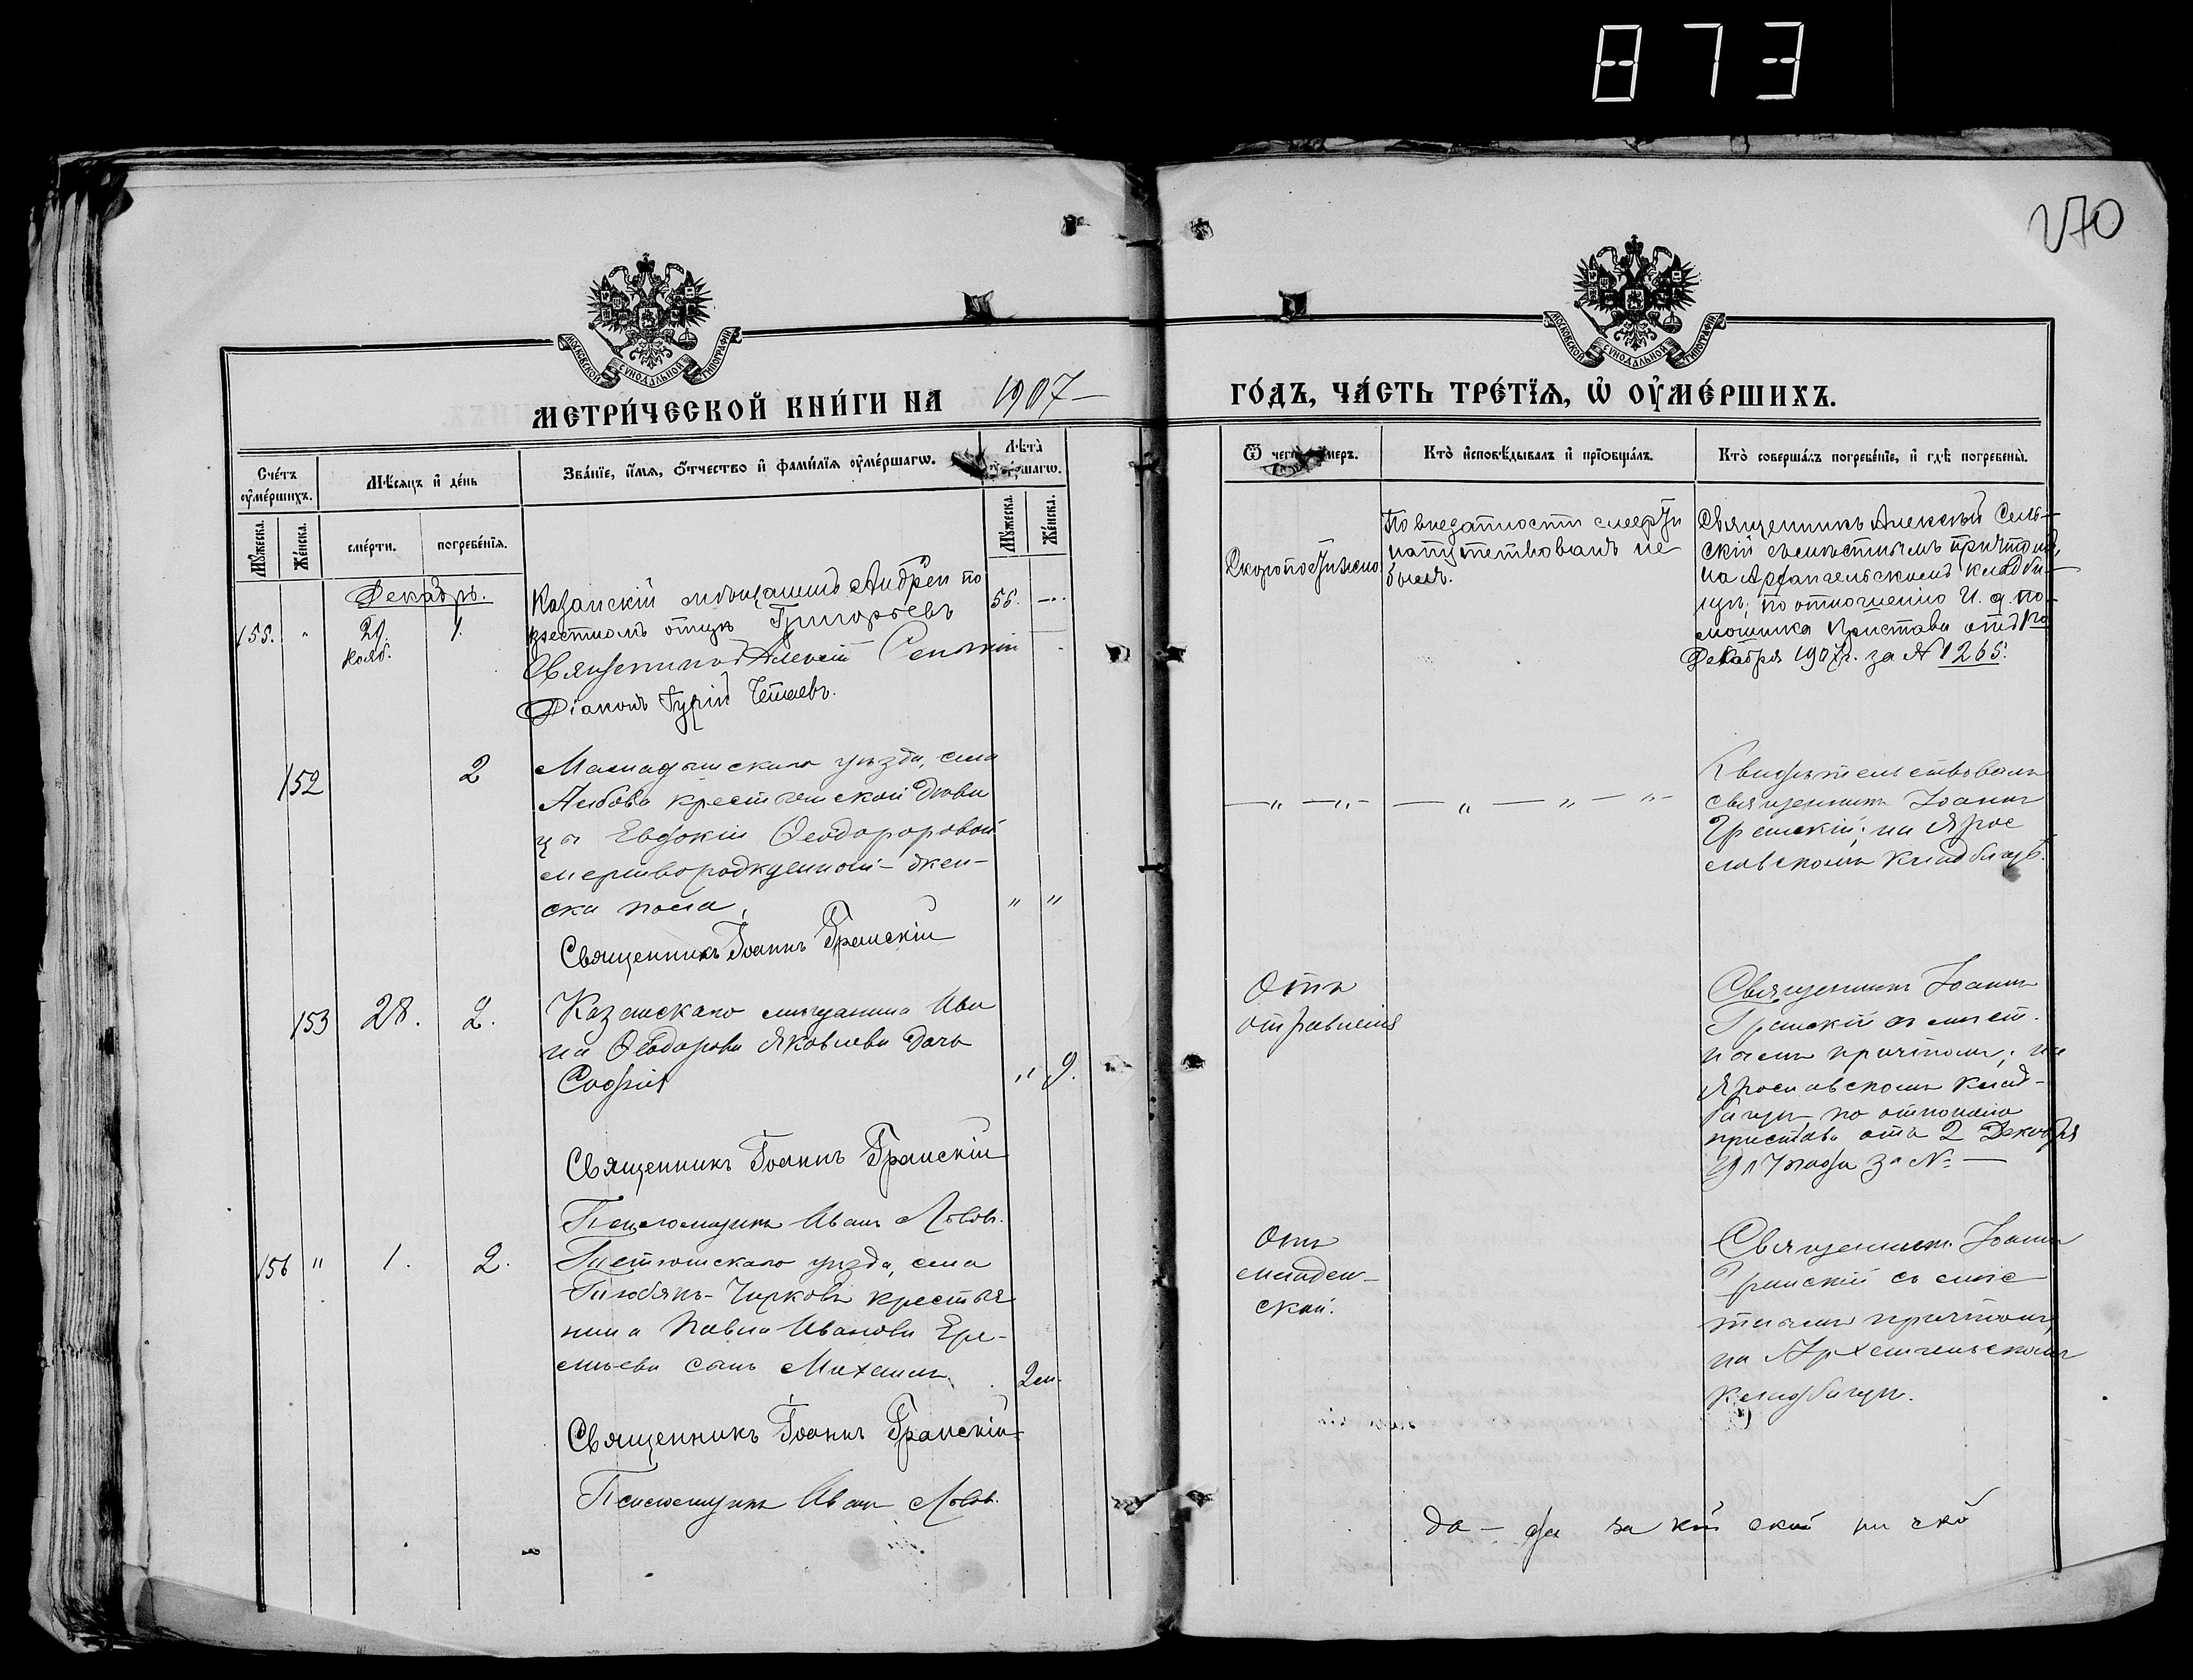 873
270
МОСКОВСКОЙ СУНОДАЛЬНОЙ ТИПОГРАФІИ
МОСКОВСКОЙ СУНОДАЛЬНОЙ ТИПОГРАФІИ
МЕТРИ́ЧЕСКОЙ КНИ́ГИ НА 1907 ГО́ДЪ, ЧА́СТЬ ТРЕ́ТЇѦ, Ѡ҆ ОУ҆МЕ́РШИХЪ.
Сче́тъ оу҆ме́ршихъ.
Мѣ́сѧцъ и҆ де́нь
Зва́нїе, и҆́мѧ, ѻ҆́тчество и҆ фами́лїѧ оу҆ме́ршагѡ.
Лѣ́та
Мꙋ́жеска.
Же́нска.
сме́рти.
погребе́нїѧ.
Мꙋ́жеска.
Же́нска.
Ѿ чегѡ̀
Кто̀ и҆сповѣ́дывалъ и҆ прїѡбща́лъ.
Кто̀ соверша́лъ погребе́нїе, и҆ гдѣ̀ погребены̀.
Декабрь.
155. " 29. Нояб. 1.
Казанскій мѣщанинъ Андрей по
крестномъ отцѣ Григорьевъ
55.
Священникъ Алексій
Діаконъ Гурій
Скоропостижно
По внезапности смерти
напутствованъ не
былъ.
Священникъ Алексѣй Сель-
скій съ мѣстнымъ причтомъ,
на Архангельскомъ кладби-
щѣ; по отношенію И. д. по-
мощника Пристава отъ
Декабря 1907 г. за № 1265.
152 2
Мамадышскаго уѣзда, села
Анзова крестьянской дѣви
цы Евдокіи Ѳеодоровой
мертворожденной жен-
ска пола. " "
Священникъ Іоаннъ Гранскій
— „ — „ — — „ — „ — „ —
Свидѣтельствовалъ
священникъ Іоаннъ
Гранскій; на Яро
славскомъ кладбищѣ.
153 28. 2.
Казанскаго мѣщанина Ива
на Ѳеодорова Яковлева дочь
Софія " 9.
Священникъ Іоаннъ Гранскій
Псаломщикъ Иванъ Львовъ.
Отъ
отравленія
Священникъ Іоаннъ
Гранскій съ мѣст.
нымъ причтомъ; на
Ярославскомъ клад-
бищѣ по отношенію
пристава отъ 2 Декабря
1907 года за № —
156 " 1. 2.
Тетюшскаго уѣзда, села
крестья
нина Павла Иванова Ере-
мѣева сынъ Михаилъ 2 м.
Священникъ Іоаннъ Гранскій
Псаломщикъ Иванъ Львовъ.
Отъ
младен-
ской.
Священникъ Іоаннъ
Гранскій съ мѣс
тнымъ причтомъ,
на Архангельскомъ
кладбищѣ.
да — да за кій ской